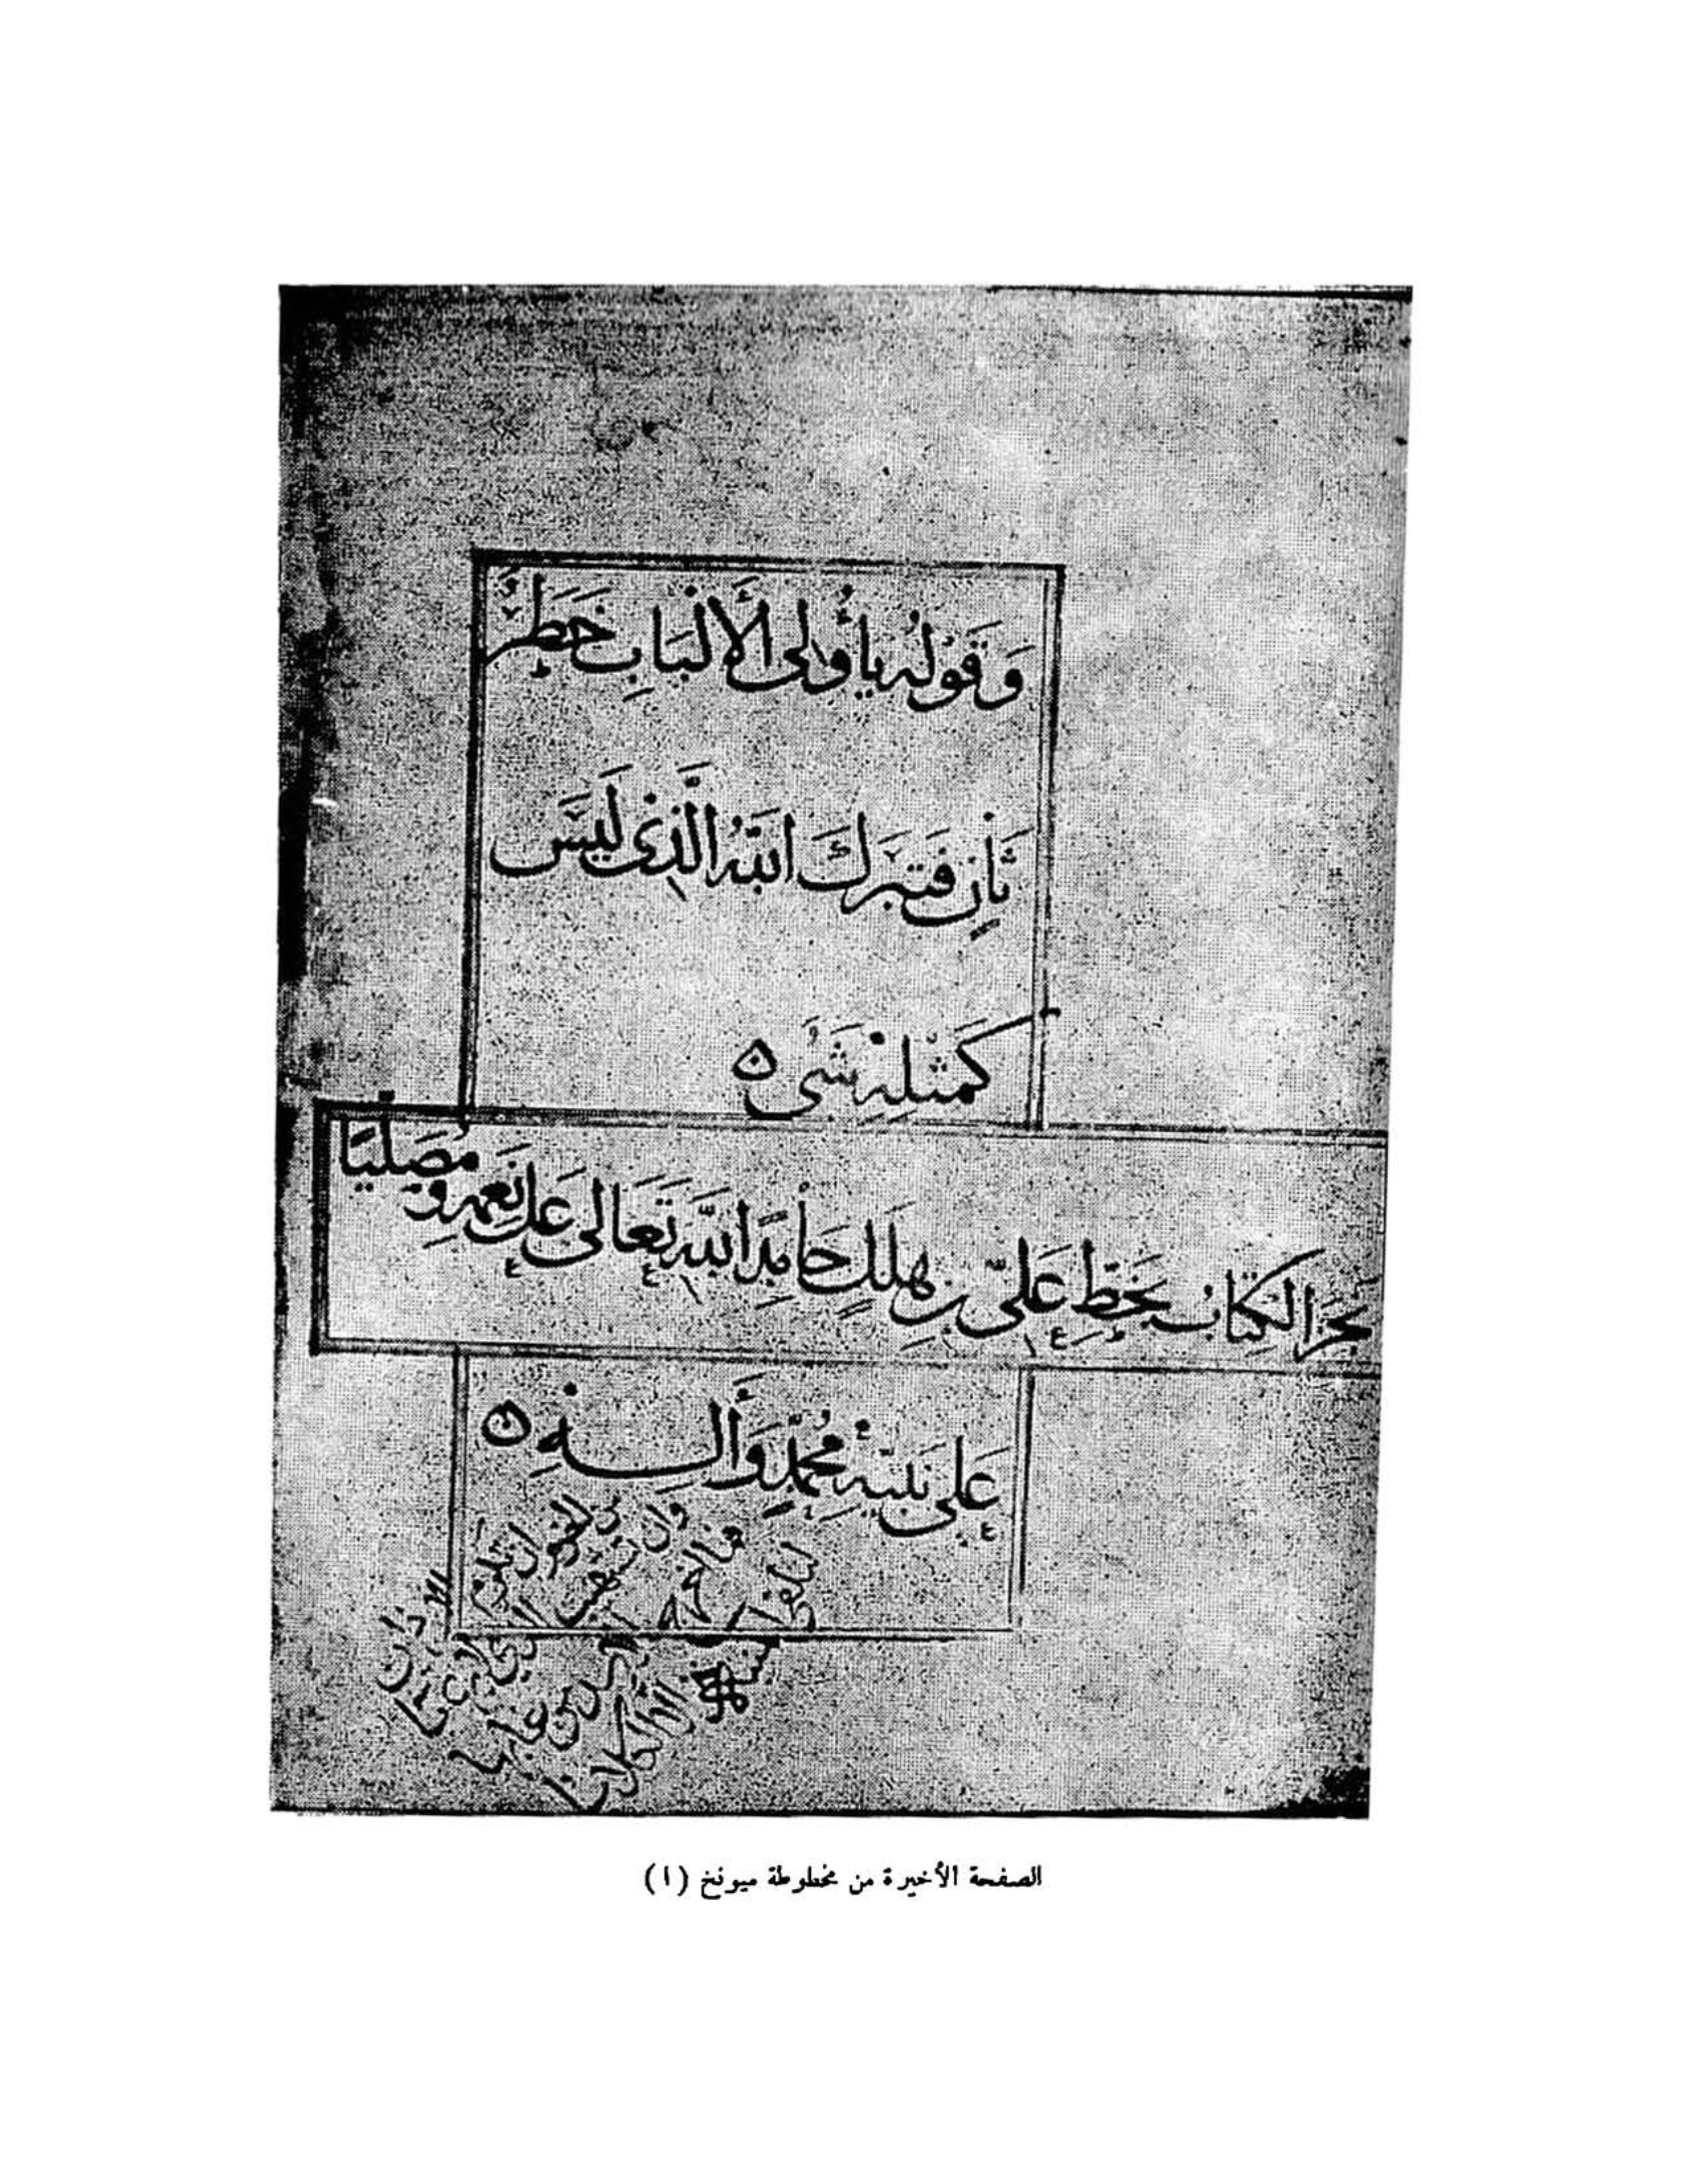 وَقَوْلُه يا أُولى الأَلْبَابِ خَطَرٌ
ثانٍ فَتَبَرَكَ اللهُ الَّذِى لَيْسَ
كَمِثْلِهِ شَىْ ه
نَجَزَ الكِتَابُ بِخَطِّ عَلِىّ بن هِلَلٍ حَامِدًا اللهَ تَعَالى عَلى نِعَمِهِ وَمُصَلِّيًا
عَلى نَبِيِّهِ مُحَمَّدٍ وَآلِهِ ه
الصفحة الأخيرة من مخطوطة ميونخ (١)